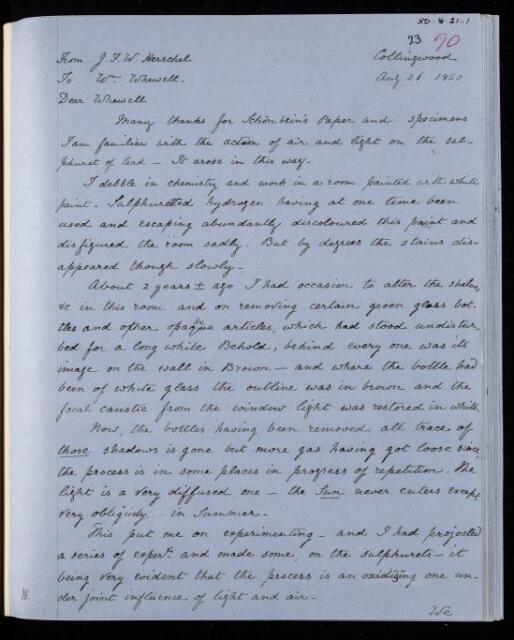 50·8·21·1
23 90
From J. F. W. Herschel Collingwood
To Wm. Whewell. Aug 21 1850
Dear Whewell
Many thanks for Schönbein's Paper and specimens
I am familiar with the action of air and light on the sul-
phuret of lead – It arose in this way.
I dabble in chemistry and work in a room painted with white
paint. Sulphuretted hydrogen having at one time been
used and escaping abundantly discoloured this paint and
disfigured the room sadly. But by degrees the stains dis-
appeared though slowly.
About 2 years ± ago I had occasion to alter the shelves
&c in this room and on removing certain green glass bot-
tles and other opaque articles, which had stood undistur
bed for a long while Behold, behind every one was its
image on the wall in Brown – and where the bottle had
been of white glass the outline was in brown and the
focal caustic from the window light was restored in white.
Now, the bottles having been removed all trace of
those shadows is gone but more gas having got loose since,
the process is in some places in progress of repetition. The
light is a very diffused one – the Sun never enters except
very obliquely in Summer.
This put me on experimenting – and I had projected
a series of expert. and made some, on the sulphurets – it
being very evident that the process is an oxidizing one un-
der joint influence of light and air –
We